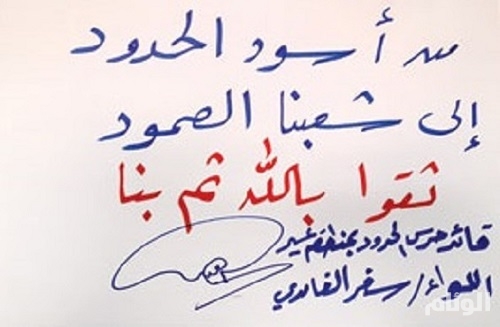 من أسود الحدود
إلى شعبنا الصمود
ثقوا بالله ثم بنا
قائد حرس الحدود بمنطقة عسير
اللواء / سفر الغامدي
الوئام